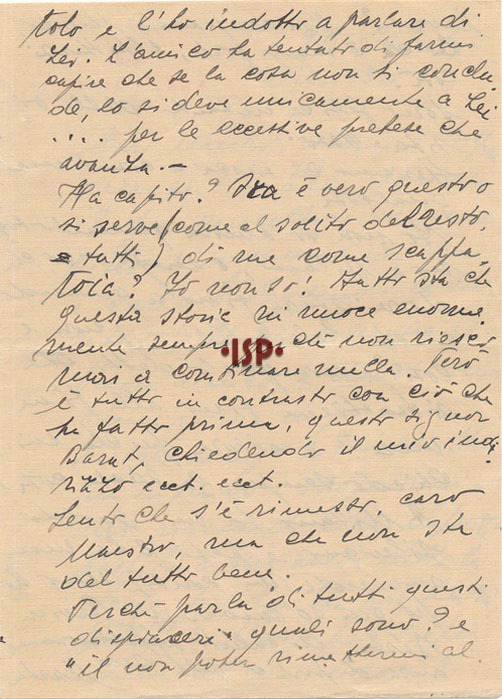 tolo e l'ho indotto a parlare di
Lei. L'amico ha tentato di farmi
capire che se la cosa non si conclu
de, lo si deve unicamente a Lei
.... per le eccessive pretese che
avanza.-
Ha capito? Ora è vero questo o
si serve (come al solito del resto,
e tutti) di me come scappa,
toia? Io non so! Fatto sta che
questa storia mi nuoce enorme
mente sempre perchè non riesco
mai a combinare nulla. Però
è tutto in contrasto con ciò che
ha fatto prima, questo signor
Barat, chiedendo il mio indi
rizzo ecct. ecct.
Sento che s'è rimesso, caro
Maestro, ma che non sta
del tutto bene.
Perchè parla di tutti questi
dispiaceri. quali sono? e
"il non poter rimettermi al
ISP